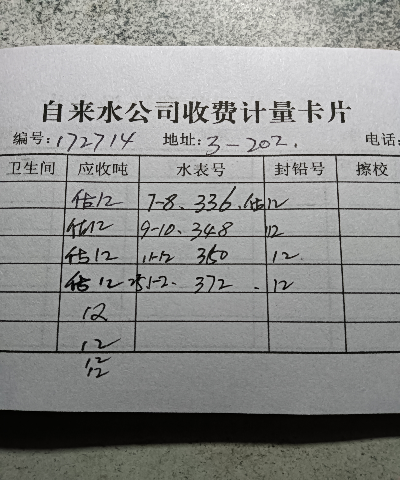 自来水公司收费计量卡片
编号:172714 地址:3-202. 电话:
卫生间 应收吨 水表号 封铅号 擦校
估12 7-8. 336. 估12
估12 9-10. 348 12
估12 11-12 360 12.
估12 25 1-2. 372 . 12
12
12
12